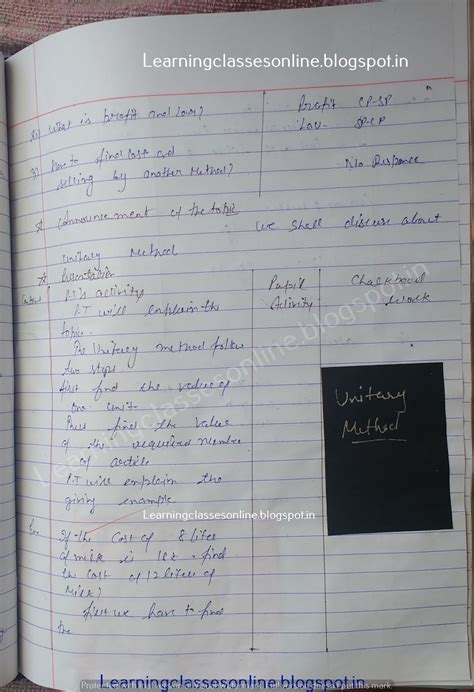 Learningclassesonline.blogspot.in
What is profit and loss?
Profit CP-SP
Loss SP-CP
How to find cost and
selling by another Method?
No Response
Announcement of the topic
We shall discuss about
unitary Method
Presentation
P.T's activity
Pupil
Activity
Chalkboard
work
P.T will explain the
topic.
Unitary method follow
two steps
first find the value of
one unit
find the value
of the required number
of article
P.T will explain the
giving example
Unitary
Method
Learningclassesonline.blogspot.in
Learningclassesonline.blogspot.in
If the cost of 8 liter
of milk is find
the cost of 12 litres of
Milk?
first we have to find
the
Learningclassesonline.blogspot.in